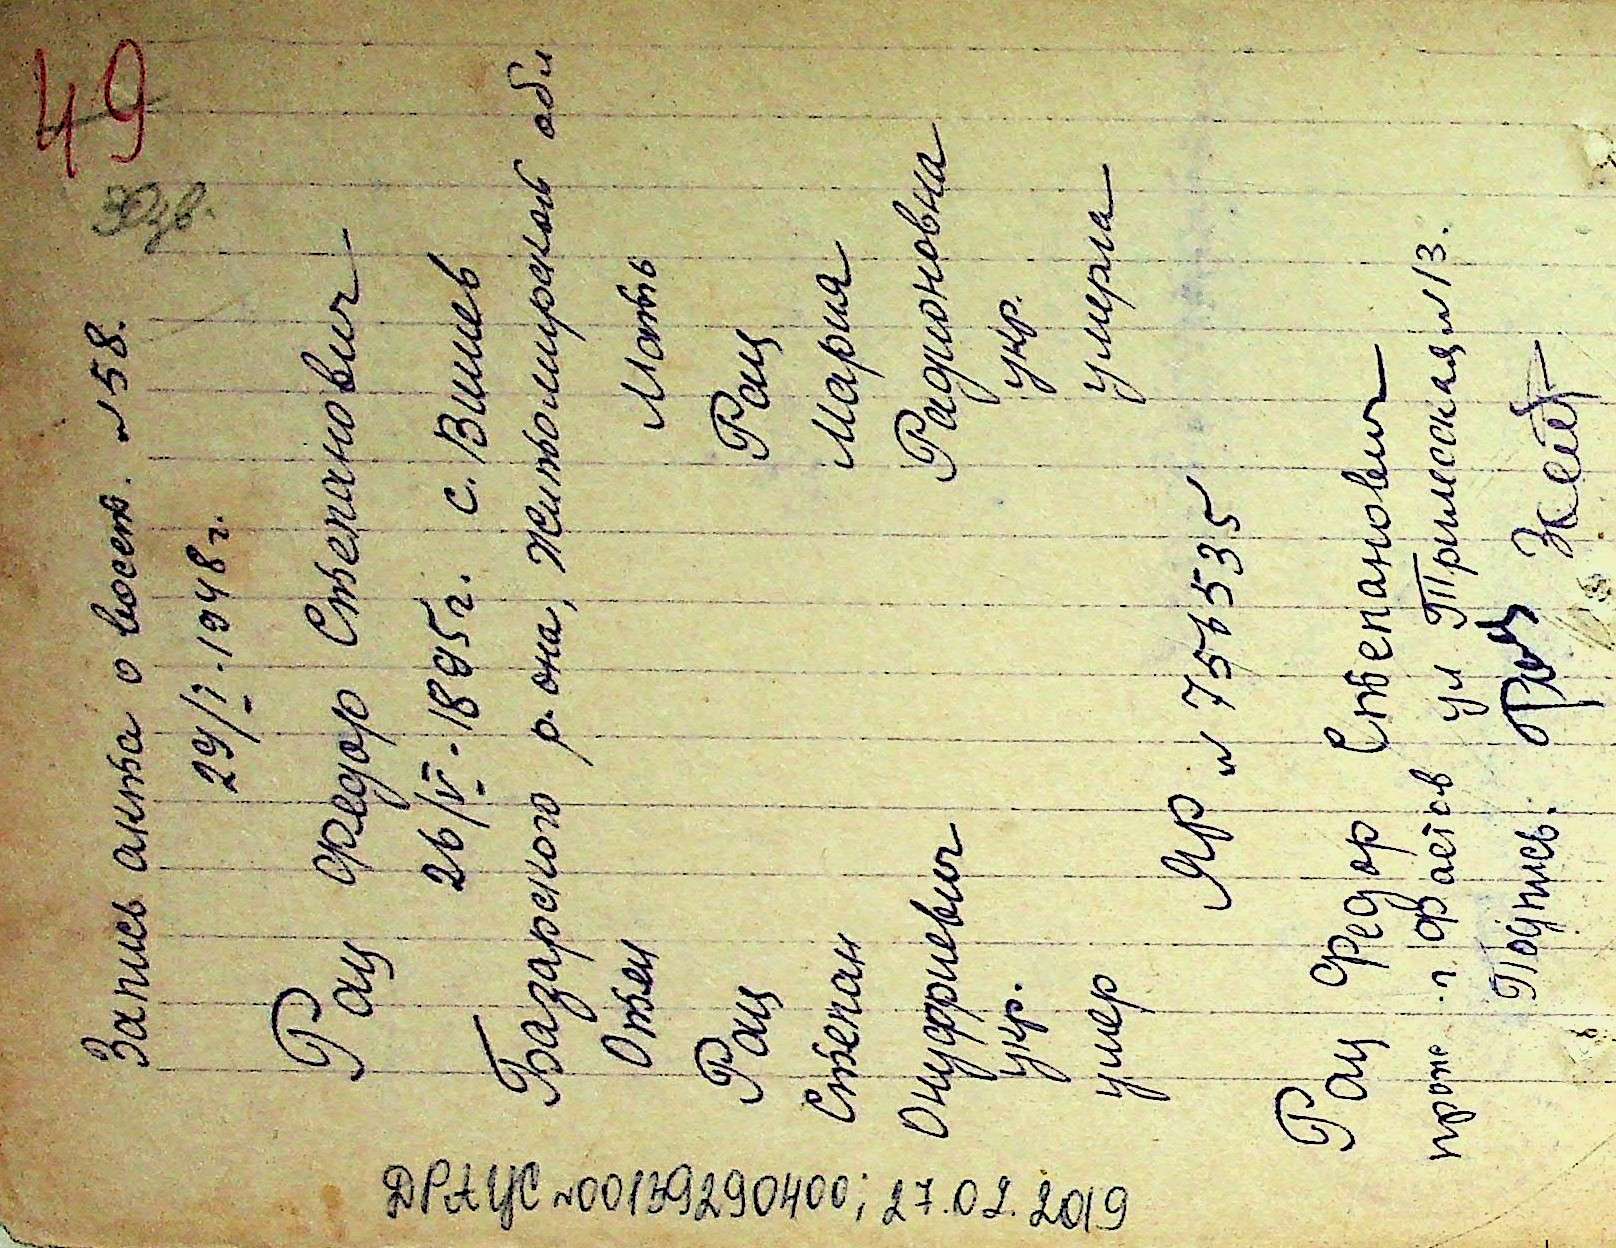 49
Запись акта о восст. №58.
29/I-1948 г.
Рац Федор Степанович
26/VI-1895 г. с. Вишев
Базарского р-она, Житомирской обл
Отец Мать
Рац Рац
Степан Мария
Онуфриевич Радионовна
укр. укр.
умер умерла
ЯР № 756535
Рац Федор Степанович
прож. г. Фастов ул 13.
Подпись. Рац
ДРАЦС №00139290400; 27.02.2019